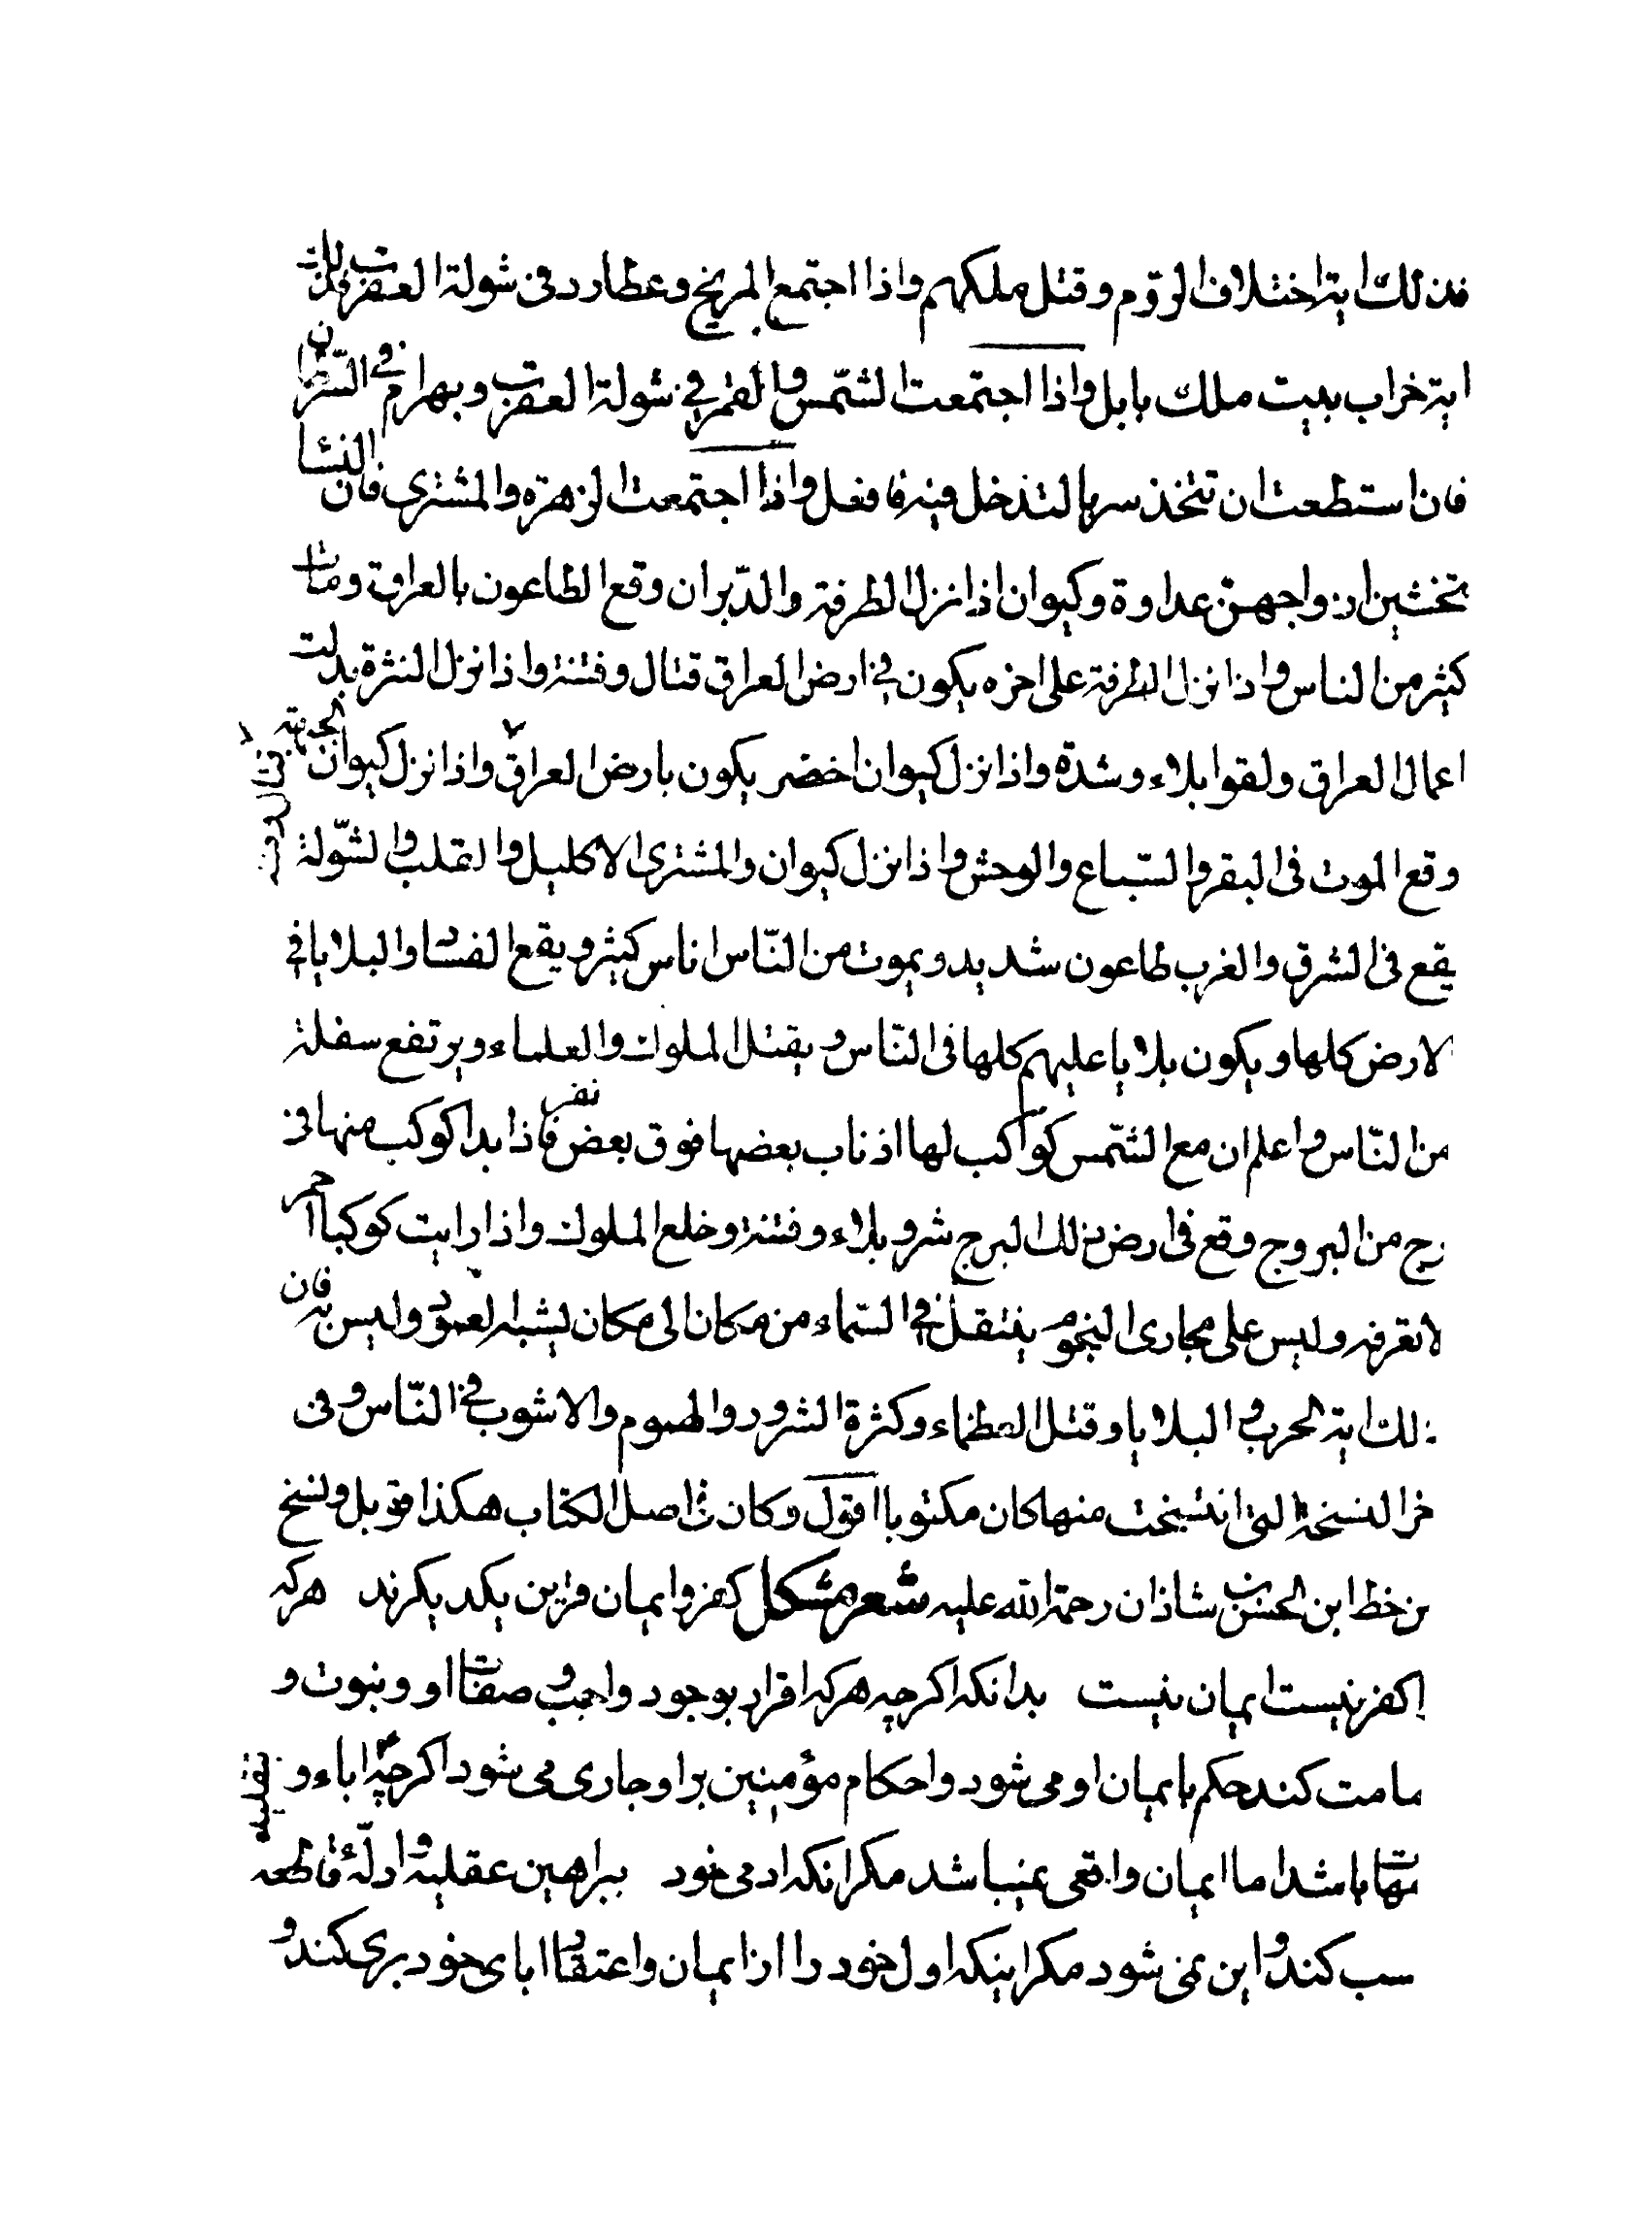 فذلك اية اختلاف الروم وقتل ملكهم واذا اجتمع المريخ وعطارد فى شولة العقرب فذلك
اية خراب بيت ملك بابل واذا اجتمعت الشمس والقمر فى شولة العقرب وبهرام فى السرطان
فان استطعت ان تتخذ سربا لتدخل فيه فافعل واذا اجتمعت الزهرة والمشترى فان النسا
تخشين ازواجهن عداوة وكيوان اذا نزل الطرفة والدبران وقع الطاعون بالعراق ومات
كثير من الناس واذا نزل الطرفة على اخره يكون فى ارض العراق قتال وفتنة واذا نزل النثرة بدلت
اعمال العراق ولقوا بلاء وشدة واذا نزل كيوان اخضر يكون بارض العراق واذا نزل كيوان الجبهة
وقع الموت فى البقر والسباع والوحش واذا نزل كيوان والمشترى الاكليل والقلب والشولة
يقع فى الشرق والغرب طاعون شديد ويموت من الناس اناس كثير ويقع الفساد والبلايا فى
الارض كلها ويكون بلايا عليهم كلها فى الناس ويقتل الملوك والعلماء ويرتفع سفلة
من الناس واعلم ان مع الشمس كواكب لها اذناب بعضها فوق بعض فاذا بدا كوكب منها فى
رج من البروج وقع فى ارض ذلك البرج شر وبلاء وفتنة وخلع الملوك واذا رايت كوكبا احمر
لا تعرفه وليس على مجارى النجوم ينتقل فى السماء من مكان الى مكان يشبه العمود وليس به فان
ذلك اية الحرب والبلايا وقتل العظماء وكثرة الشرور والهموم والاشوب فى الناس وفى
خر النسخة التى انتسخت منها كان مكتوبا اقول وكان فى اصل الكتاب هكذا قوبل ونسخ
من خط ابن الحسن بن شاذان رحمة الله عليه شعر مشكل كفر وايمان قرين يكديكرند هركه
را كفر نيست ايمان نيست بدانكه اكرچه هركه اقرار بوجود واجب و صفات او و نبوت و
مامت كند حكم بايمان او مى شود و احكام مؤمنين بر او جارى مى شود اكرچه اباء و
تهات باشد اما ايمان واقعى نميباشد مكر انكه ادمى خود ببراهين عقليه و ادلۀ قاطعه
سب كند و اين نمى شود مكر اينكه اول خود را از ايمان و اعتقاد اباى خود برى كند و